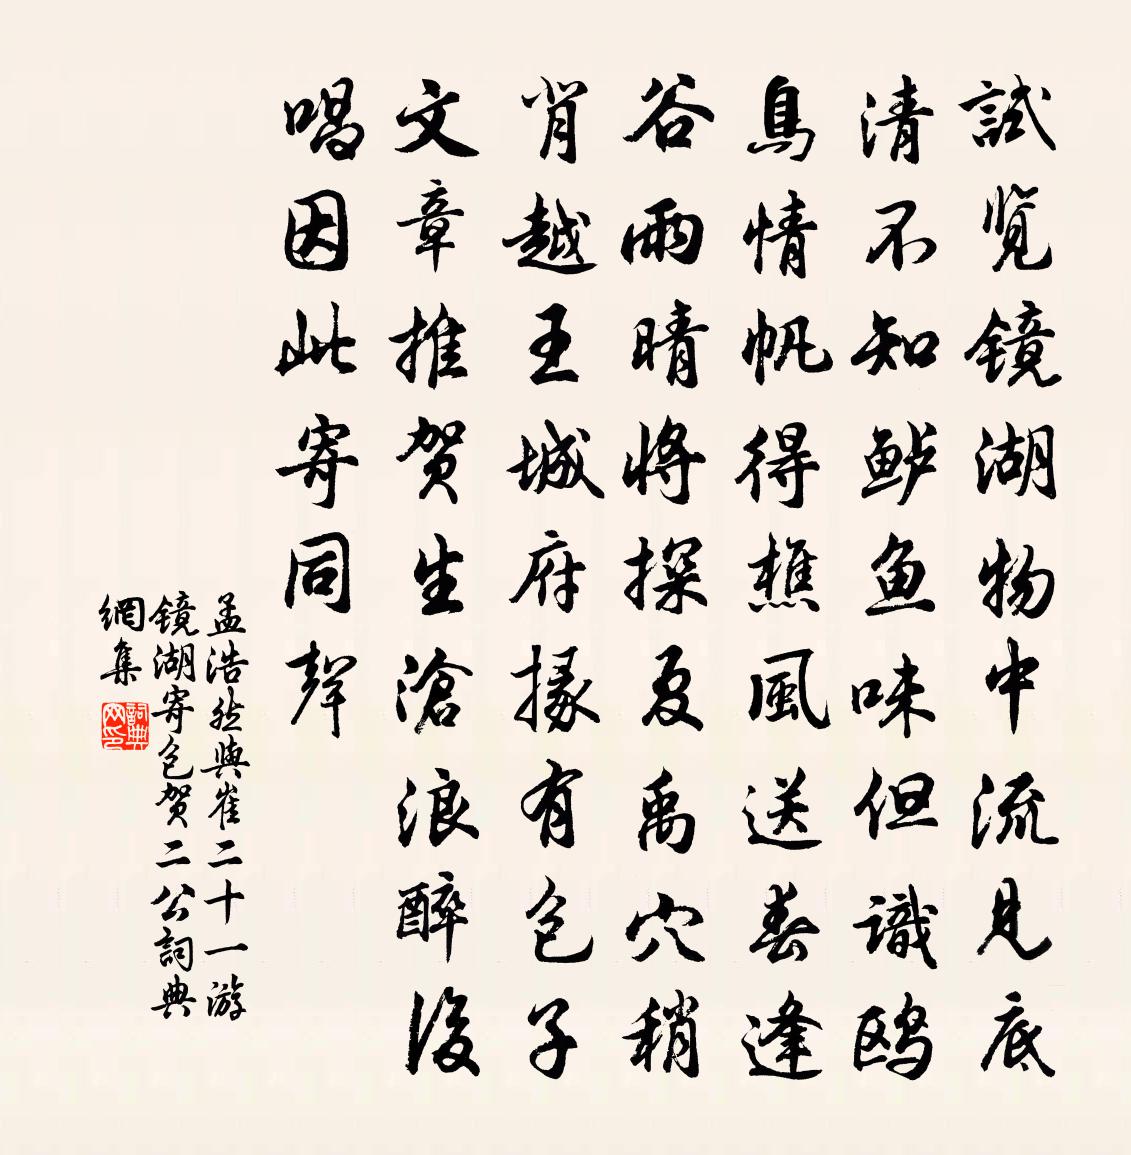 試览鏡湖物中流見底
清不知鲈魚味但識鸥
鳥情帆得樵風送春逢
谷雨晴將探夏禹穴稍
背越王城府掾有包子
文章推贺生滄浪醉後
唱因此寄同聲
孟浩然與崔二十一游
鏡湖寄包贺二公詞典
網集
詞典網印